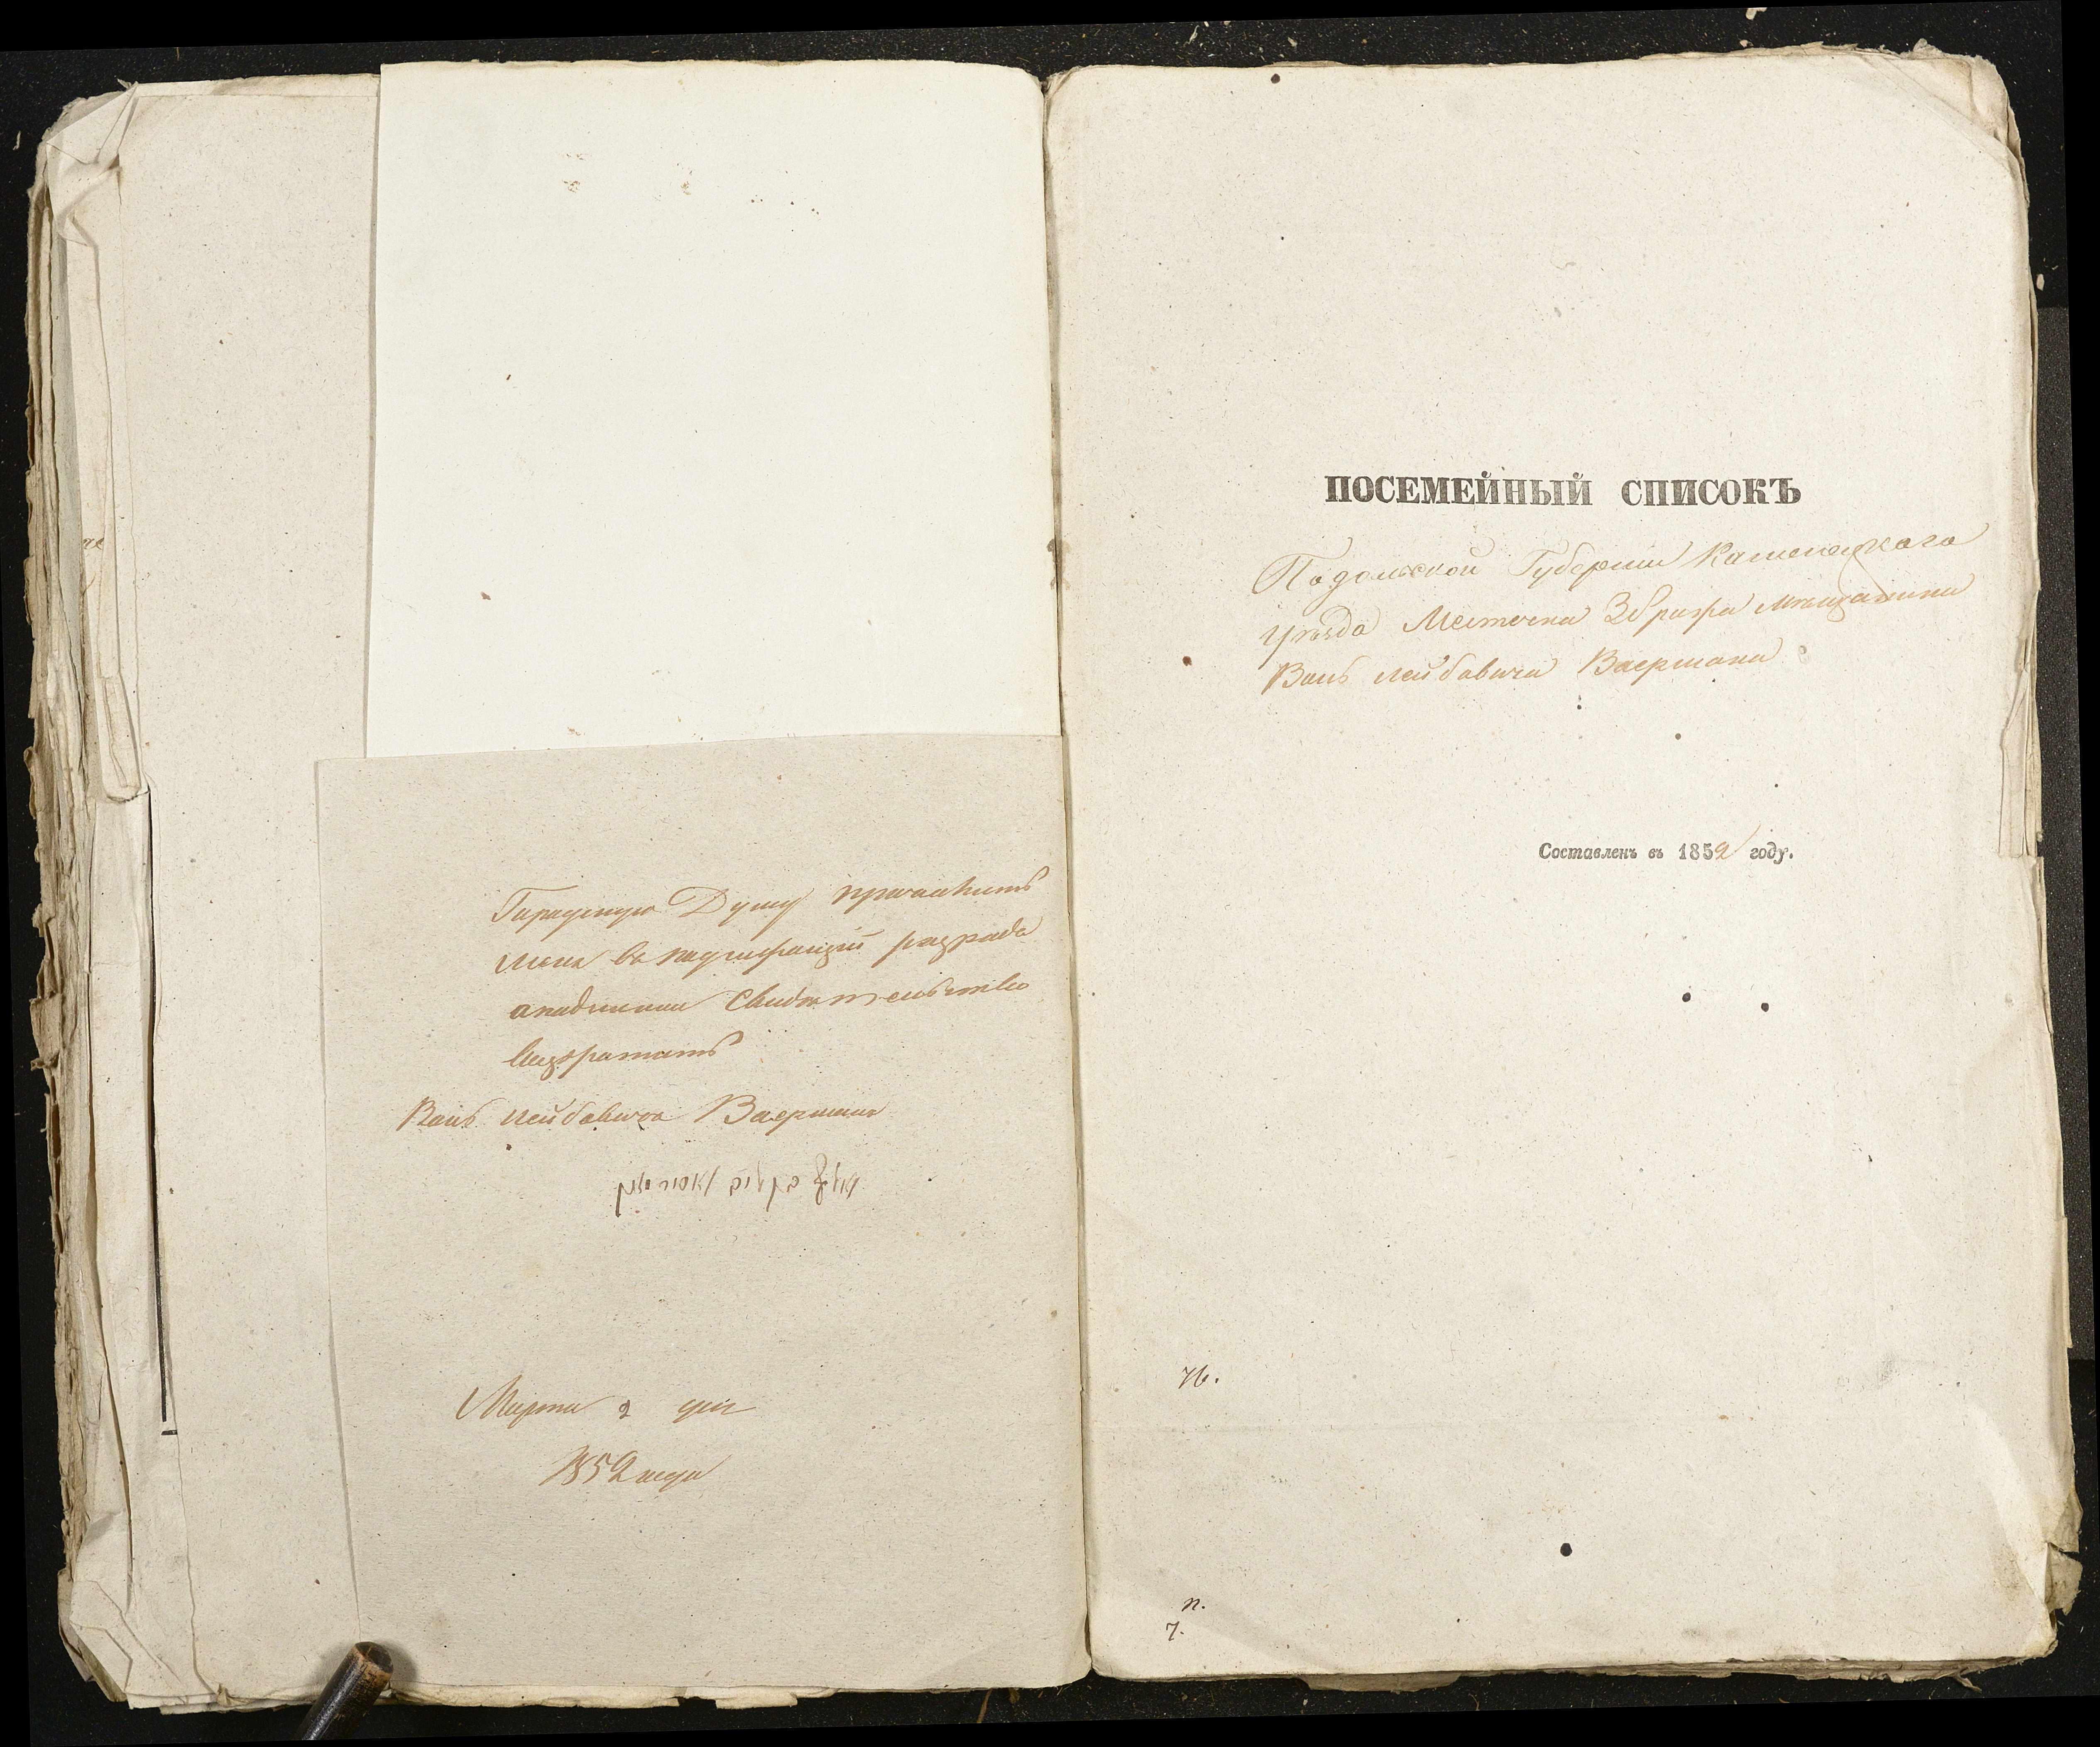 Гарадскую Думу причислить
меня в надлежащий разряда
свидетельство
возвратить
Воль Лейбовича Ваерман
Марта 2 дня
1852 года
ПОСЕМЕЙНЫЙ СПИСОКЪ
Подольской Губернии Каменецкаго
уезда Местечка Збрижа мещанина
Воль Лейбовича Ваермана
Составленъ въ 1852 году.
76.
п.
7.